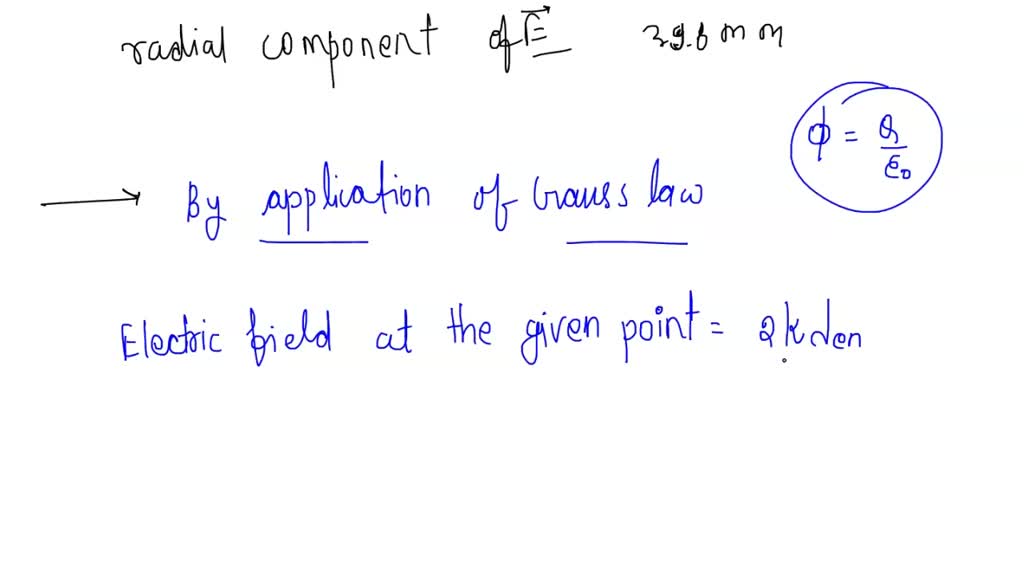 radial component of E⃗ 29.6 m m
ϕ = Q/ε₀
→ By application of Gauss law
Electric field at the given point = 2k